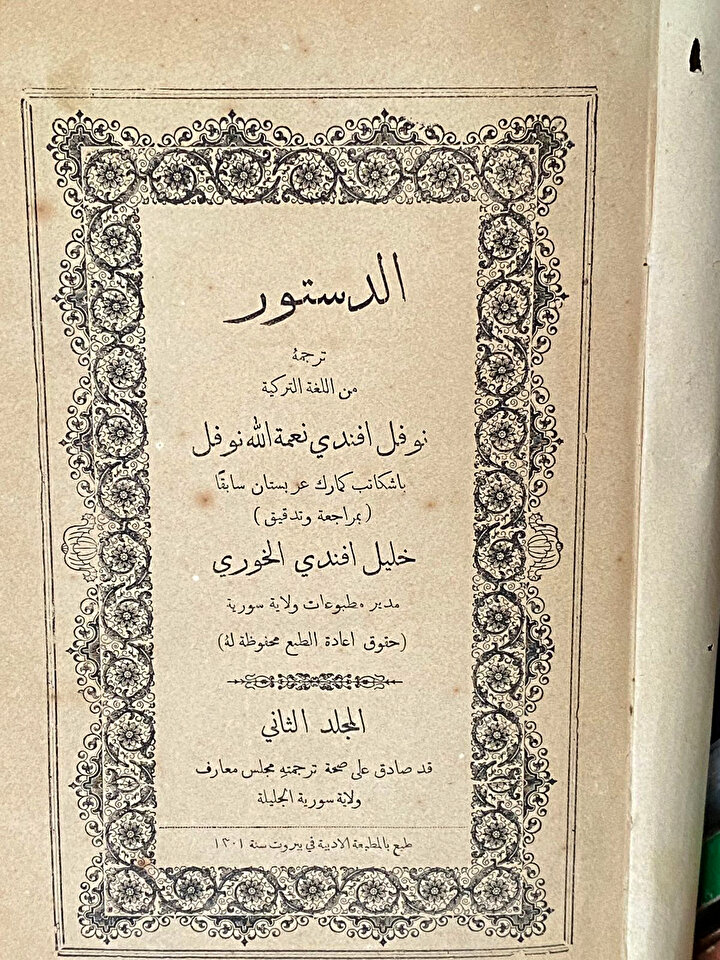 الدستور
ترجمهُ
من اللغة التركية
نوفل افندي نعمة الله نوفل
باشكاتب كمارك عربستان سابقًا
( بمراجعة وتدقيق )
خليل افندي الخوري
مدير مطبوعات ولاية سورية
(حقوق اعادة الطبع محفوظة لهُ)
المجلد الثاني
قد صادق على صحة ترجمتهِ مجلس معارف
ولاية سورية الجليلة
طبع بالمطبعة الادبية في بيروت سنة ١٣٠١